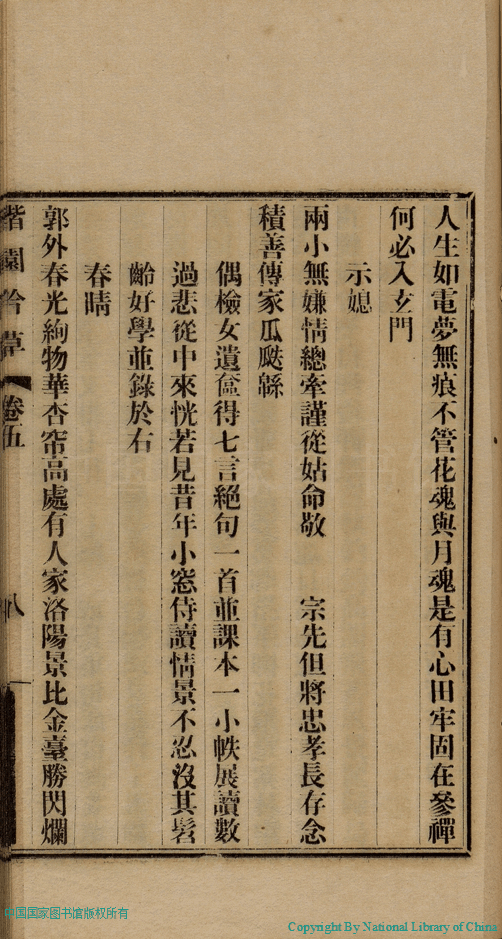 人生如電夢無痕不管花魂與月魂是有心田牢固在參禪
何必入玄門
示媳
兩小無嫌情總牽謹從姑命敬 宗先但將忠孝長存念
積善傳家瓜瓞緜
偶檢女遺奩得七言絕句一首並課本一小帙展讀數
過悲從中來恍若見昔年小窻侍讀情景不忍沒其髫
齡好學並錄於右
春晴
郭外春光絢物華杏帘高處有人家洛陽景比金臺勝閃爛
卷五
八
国国家图书馆版权所有
Copyright By National Library of China